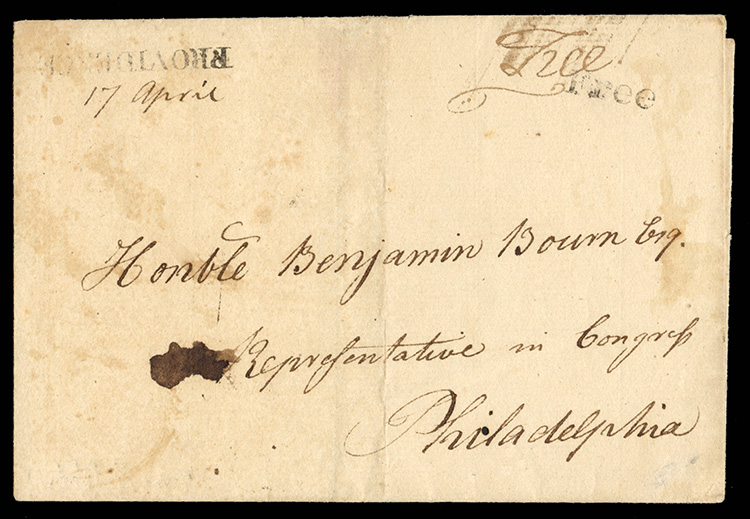 PROVIDENCE
17 April
Free
Free
Honble Benjamin Bourn Esq.
Repreſentative in Congreſs
Philadelphia